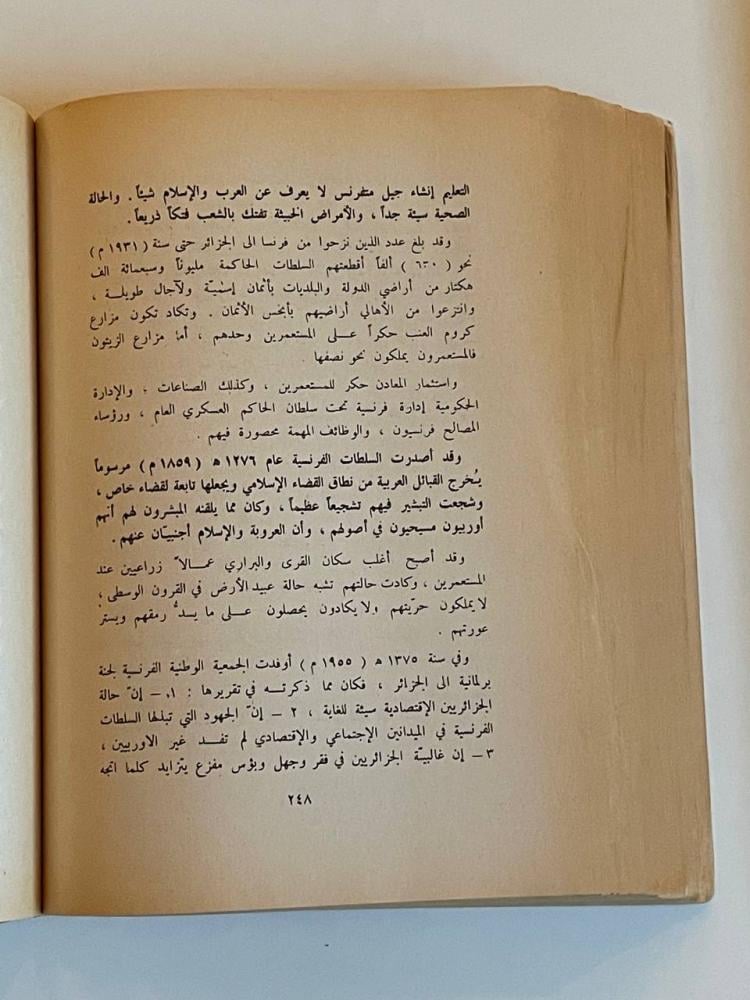 التعليم إنشاء جيل متفرنس لا يعرف عن العرب والإسلام شيئاً . والحالة
الصحية سيئة جداً ، والأمراض الخبيثة تفتك بالشعب فتكاً ذريعاً .
وقد بلغ عدد الذين نزحوا من فرنسا الى الجزائر حتى سنة ( ١٩٣١ م )
نحو ألفاً أقطعتهم السلطات الحاكمة مليوناً وسبعمائة الف
هكتار من أراضي الدولة والبلديات بأثمان إسميّة ولآجال طويلـــة ،
وانتزعوا من الأهالي أراضيهم بأبخس الأثمان . وتكاد تكون مزارع
كروم العنب حكراً عـــلى المستعمرين وحدهم ، أما مزارع الزيتون
فالمستعمرون يملكون نحو نصفها .
واستثمار المعادن حكر للمستعمرين ، وكذلك الصناعات ؛ والإدارة
الحكومية إدارة فرنسية تحت سلطان الحاكم العسكري العام ، ورؤساء
المصالح فرنسيون ، والوظائف المهمة محصورة فيهم .
وقد أصدرت السلطات الفرنسية عام ١٢٧٦ ه ( ١٨٥٩ م ) مرسوماً
يُخرج القبائل العربية من نطاق القضاء الإسلامي ويجعلها تابعة لقضاء خاص ،
وشجعت التبشير فيهم تشجيعاً عظيماً ، وكان مما يلقنه المبشرون لهم أنهم
أوربيون مسيحيون في أصولهم ، وأن العروبة والإسلام أجنبيّان عنهم .
وقد أصبح أغلب سكان القرى والبراري عمـــالاً زراعيين عند
المستعمرين ، وكادت حالتهم تشبه حالة عبيد الأرض في القرون الوسطى ،
لا يملكون حرّيتهم ولا يكادون يحصلون عـــلى ما يسدُّ رمقهم ويستر
عورتهم .
وفي سنة ١٣٧٥ ه ( ١٩٥٥ م ) أوفدت الجمعية الوطنية الفرنسية لجنة
برلمانية الى الجزائر ، فكان مما ذكرتـــه في تقريرها : ١ ـ إنّ حالة
الجزائريين الإقتصادية سيئة للغاية ، ٢ ـ إنّ الجهود التي تبذلها السلطات
الفرنسية في الميدانين الإجتماعي والإقتصادي لم تفـــد غير الاوربيين ،
٣ ـ إن غالبيّة الجزائريين في فقر وجهل وبؤس مفزع يتزايد كلما اتجه
٢٤٨